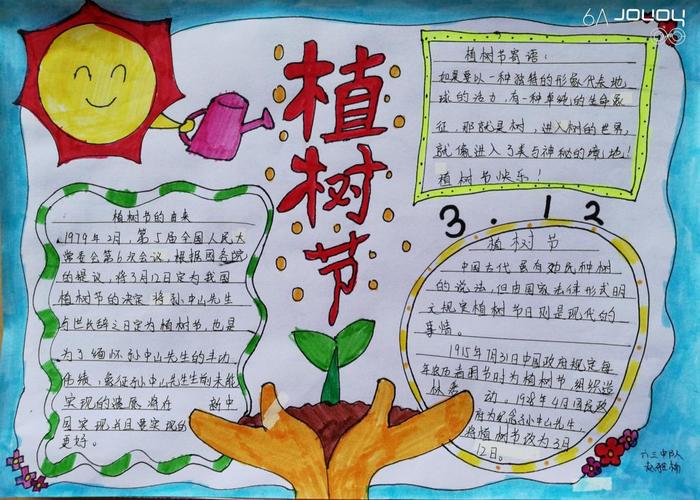 6A JOYOY
植树节
植树节寄语:
如果要以一种独特的形象代表地
球的活力,有一种单纯的生命象
征,那就是树,进入树的世界,
就像进入了美与神秘的境地!
植树节快乐!
3.12
植树节的由来
1979年2月,第5届全国人民大
常委会第6次会议,根据国务院
的提议,将3月12日定为我国
植树节的决定 将孙中山先生
与世长辞之日定为植树节,也是
为了缅怀孙中山先生的丰功
伟绩,象征孙中山先生生前未能
实现的遗愿 将在 新中
国实现并且要实现的
更好。
植树节
中国古代虽有劝民种树
的说法,但由国家法律形式明
文规定植树节日则是现代的
事情。
1915年7月31日中国政府规定每
年农历清明节时为植树节 组织造
林 动,1928年4月国民政
府为纪念孙中山先生,
将植树节改为3月
12日。
六三中队